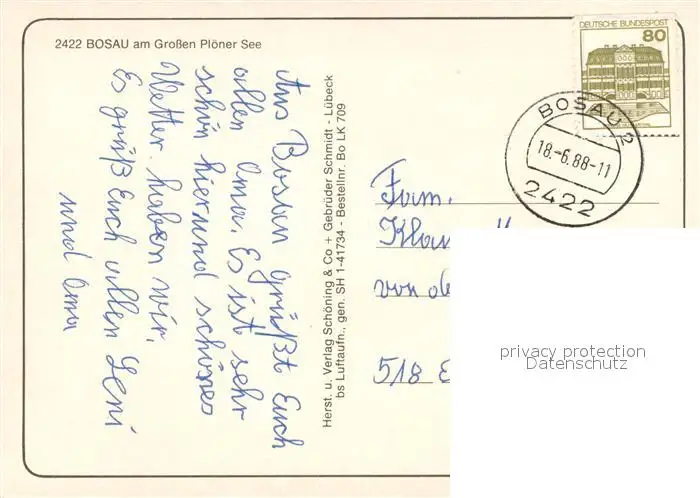 2422 BOSAU am Großen Plöner See
Aus Bosau grüßt Euch
allen Oma. Es ist sehr
schön hier und schönes
Wetter haben wir.
Es grüß Euch allen Leni
und Oma
Herst. u. Verlag Schöning & Co + Gebrüder Schmidt - Lübeck
bs Luftaufn., gen. SH 1-41734 - Bestellnr. Bo LK 709
DEUTSCHE BUNDESPOST
80
BOSAU 2
18.-6.88-11
2422
Fam.
von
518
privacy protection
Datenschutz